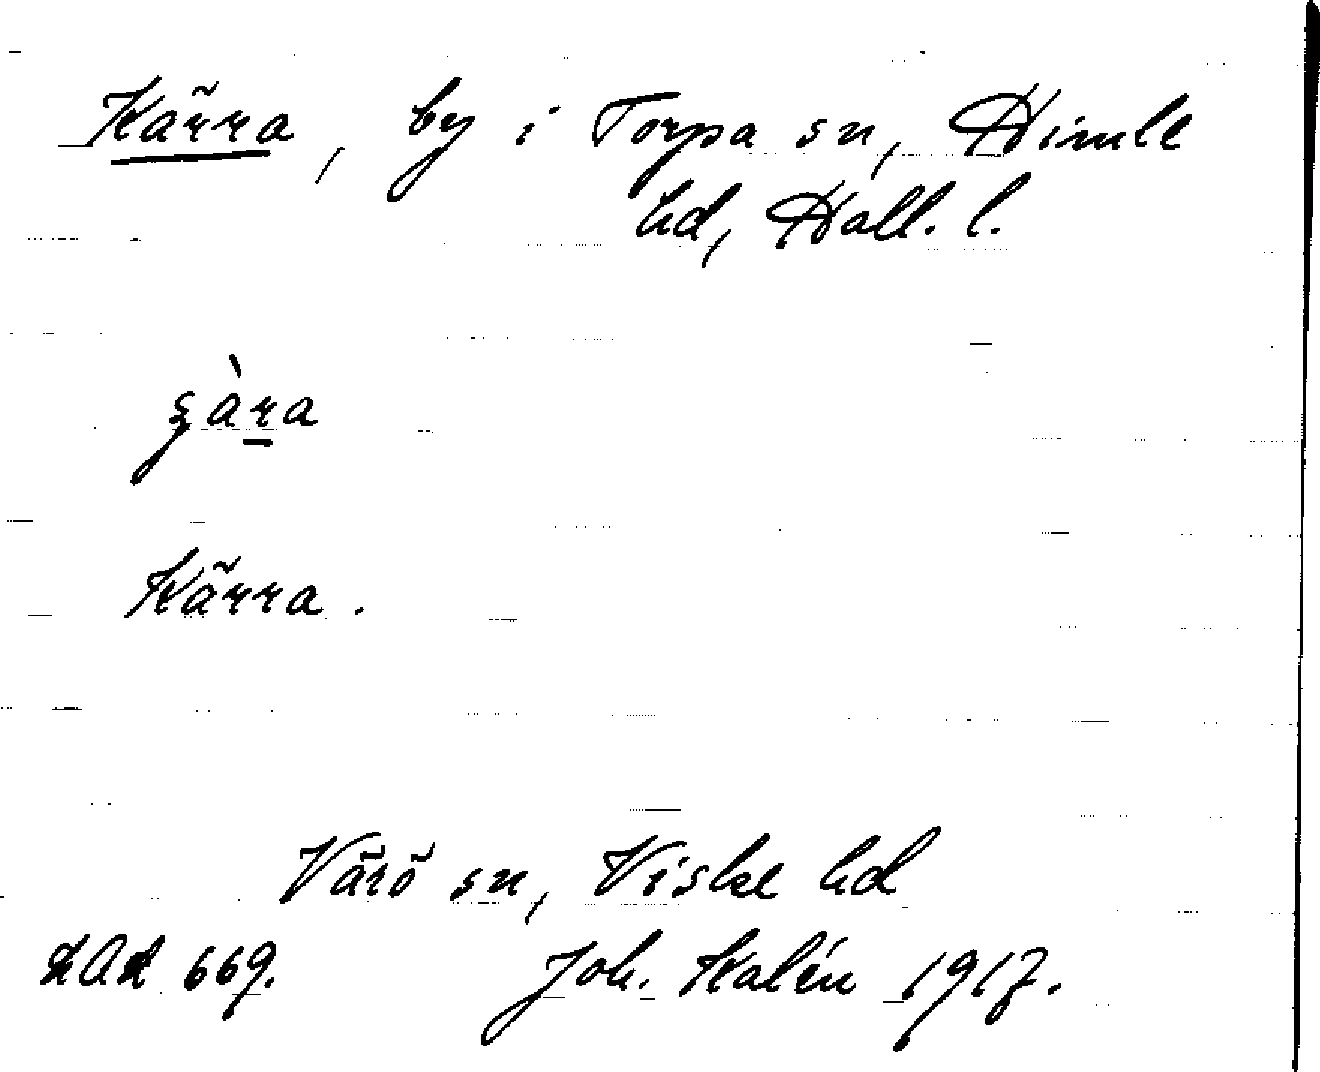 Kärra, by i Torpa sn, Himle
hd, Hall. l.
Kärra.
Värö sn, Viske hd
669. Joh. Kalén 1917.